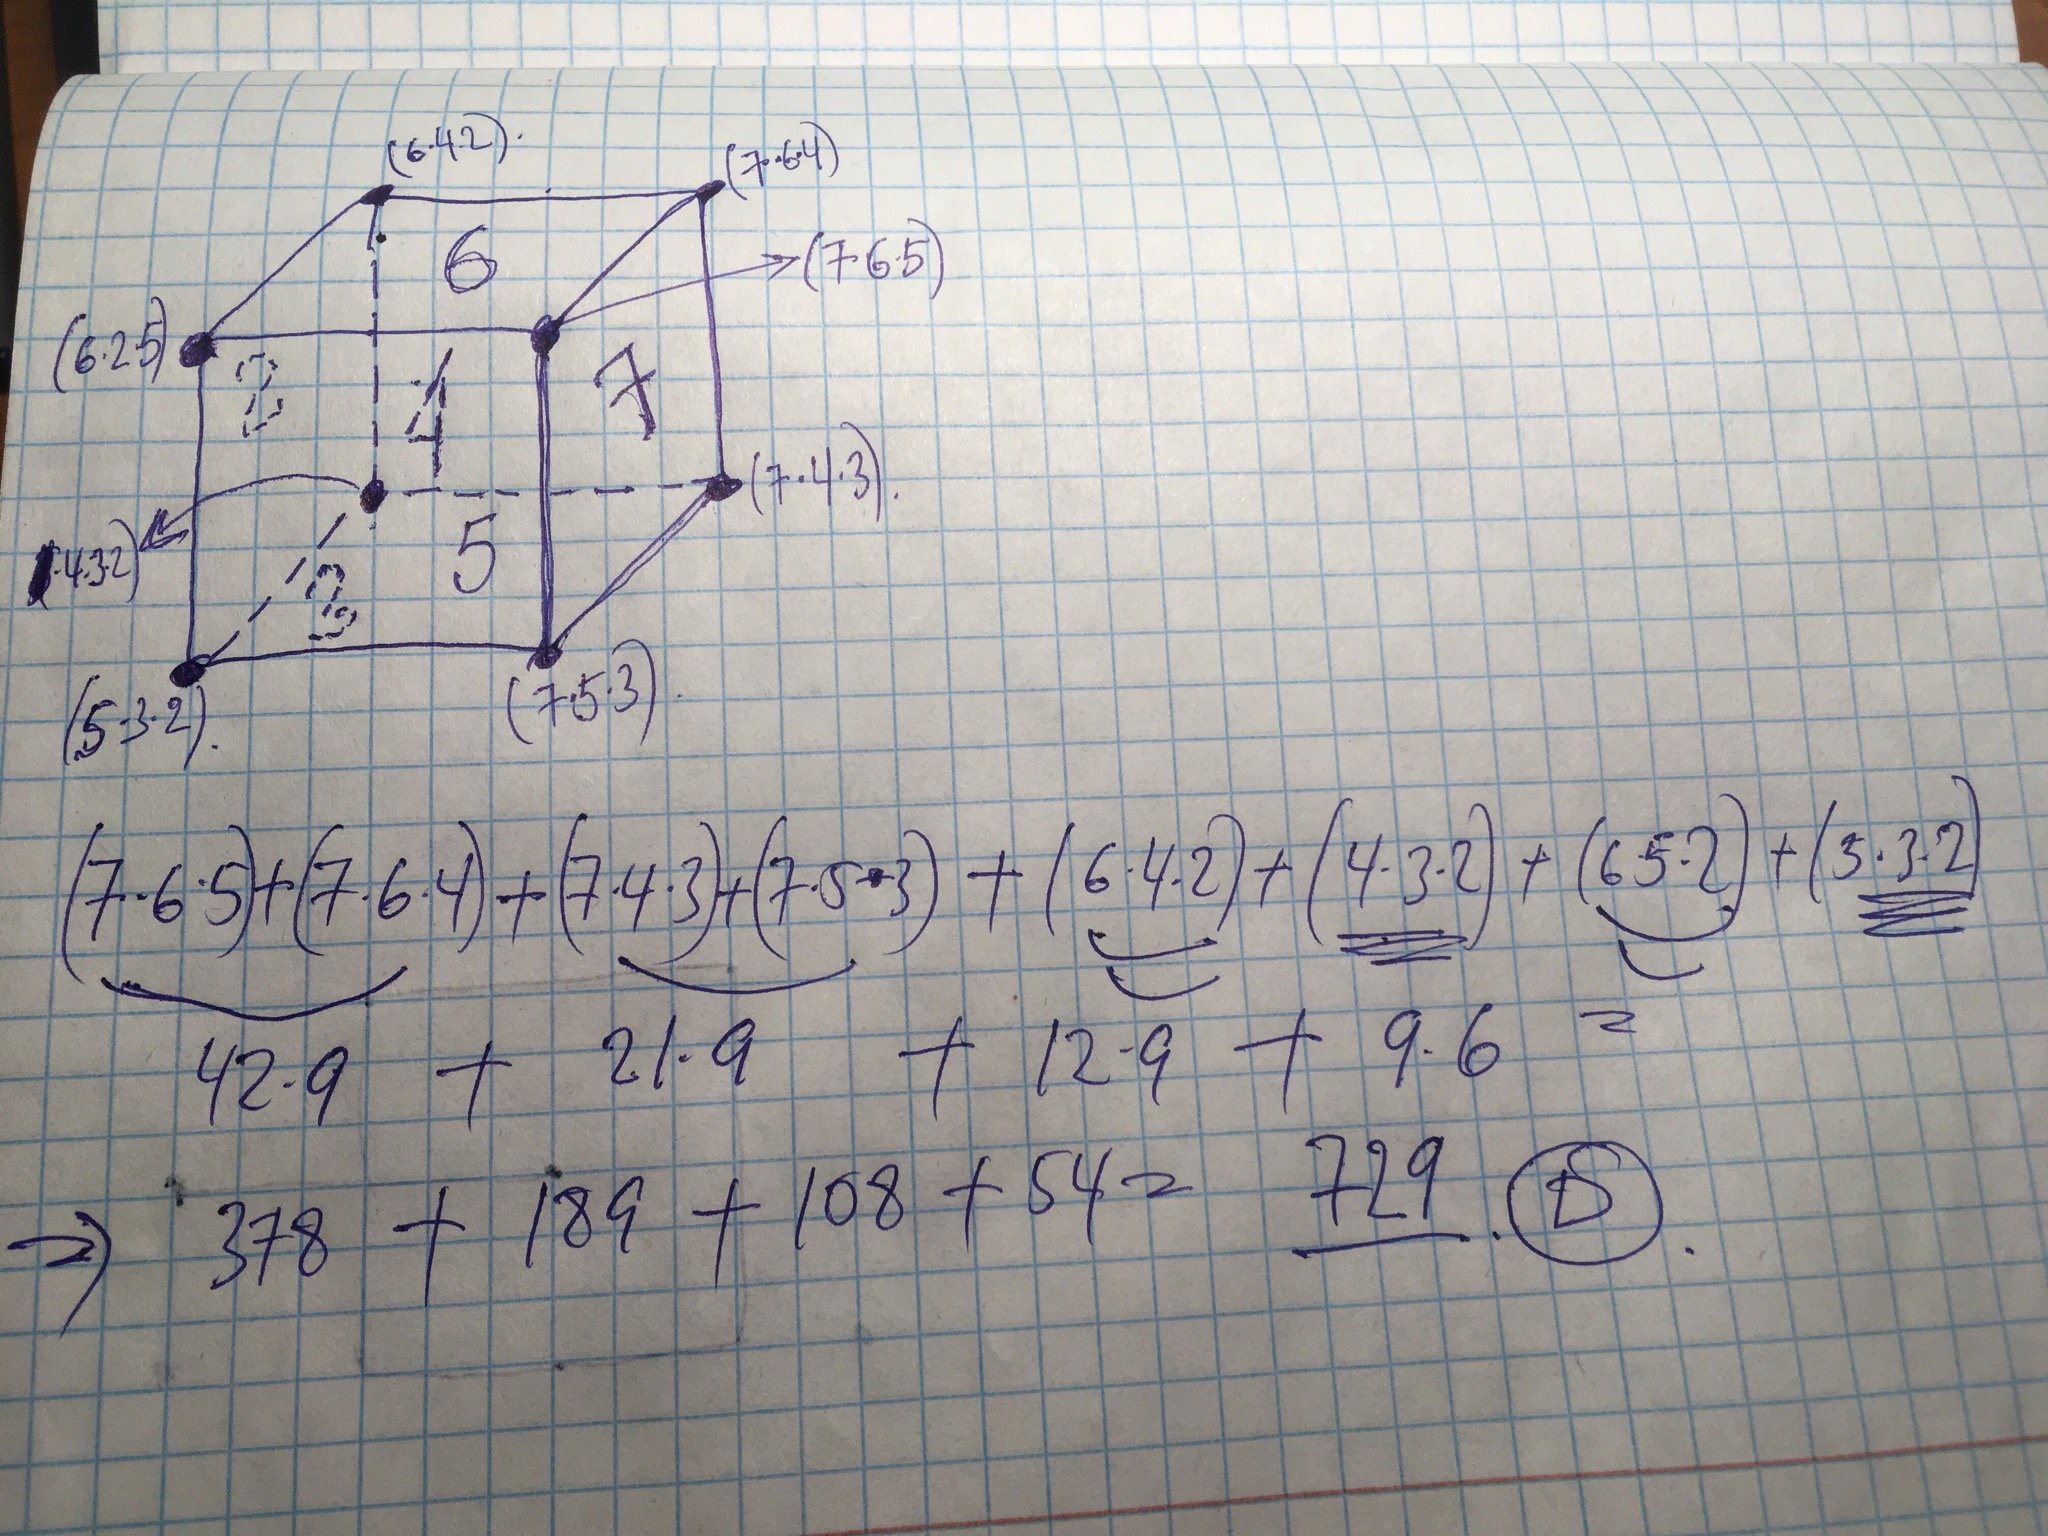 (6·4·2).
(7·6·4)
6
(7·6·5)
(6·2·5)
2
4
7
(7·4·3).
·4·3·2)
5
3
(5·3·2).
(7·5·3).
(7·6·5)+(7·6·4)+(7·4·3)+(7·5·3)+(6·4·2)+(4·3·2)+(6·5·2)+(5·3·2)
42·9 + 21·9 + 12·9 + 9·6 =
⇒ 378 + 189 + 108 + 54 = 729. D.